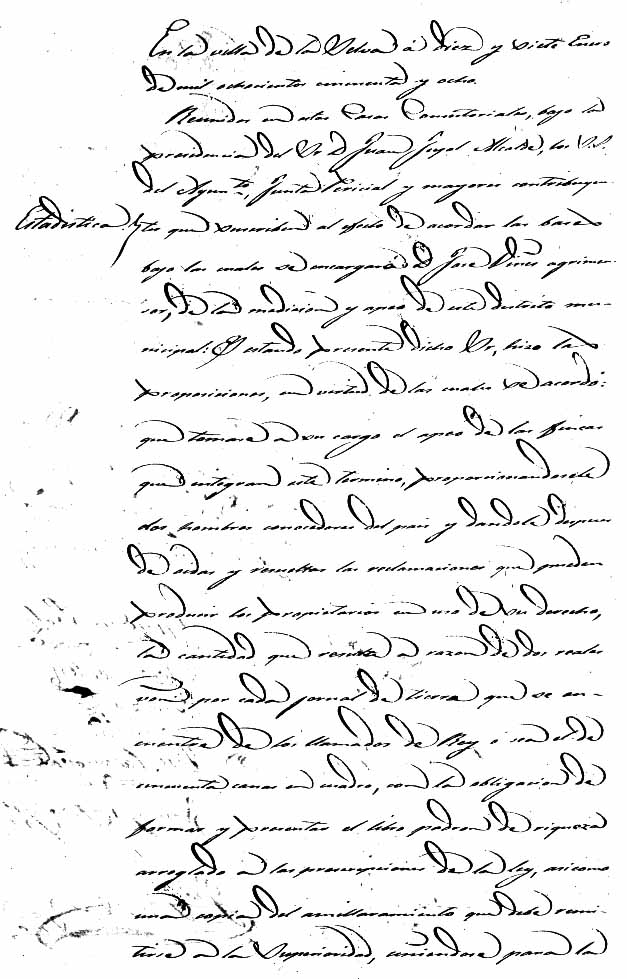 En la villa de la Selva á diez y siete Enero
de mil ochocientos cincuenta y ocho.
Reunidos en estas Casas Consistoriales, bajo la
presidencia del Sr D. Juan Alcalde, los S.S.
del Ayunto, Junta Pericial y mayores contribuyen-
Estadistica
tes que suscriben al efecto de acordar las bases
bajo las cuales se encargará D. José Viñes agrimen-
sor, de la medicion y apeo de este distrito mu-
nicipal: Y estando presente dicho Sr, hizo las
proposiciones, en virtud de las cuales se acordó:
que tomara á su cargo el apeo de las fincas
que integran este termino, proporcionandosele
dos hombres conocedores del pais y dandole despues
de oidas y resueltas las reclamaciones que pueden
producir los propietarios en uso de su derecho,
la cantidad que resulte á razon de dos reales
von por cada jornal de tierra que se en-
cuentre de los llamados de Rey ó sea el de
cincuenta canas en cuadro, con la obligacion de
formar y presentar el libro padron de riqueza
arreglado á las prescripciones de la ley, asi como
una copia del amillaramiento que debe remi-
tirse á la Superioridad, uniendose para la